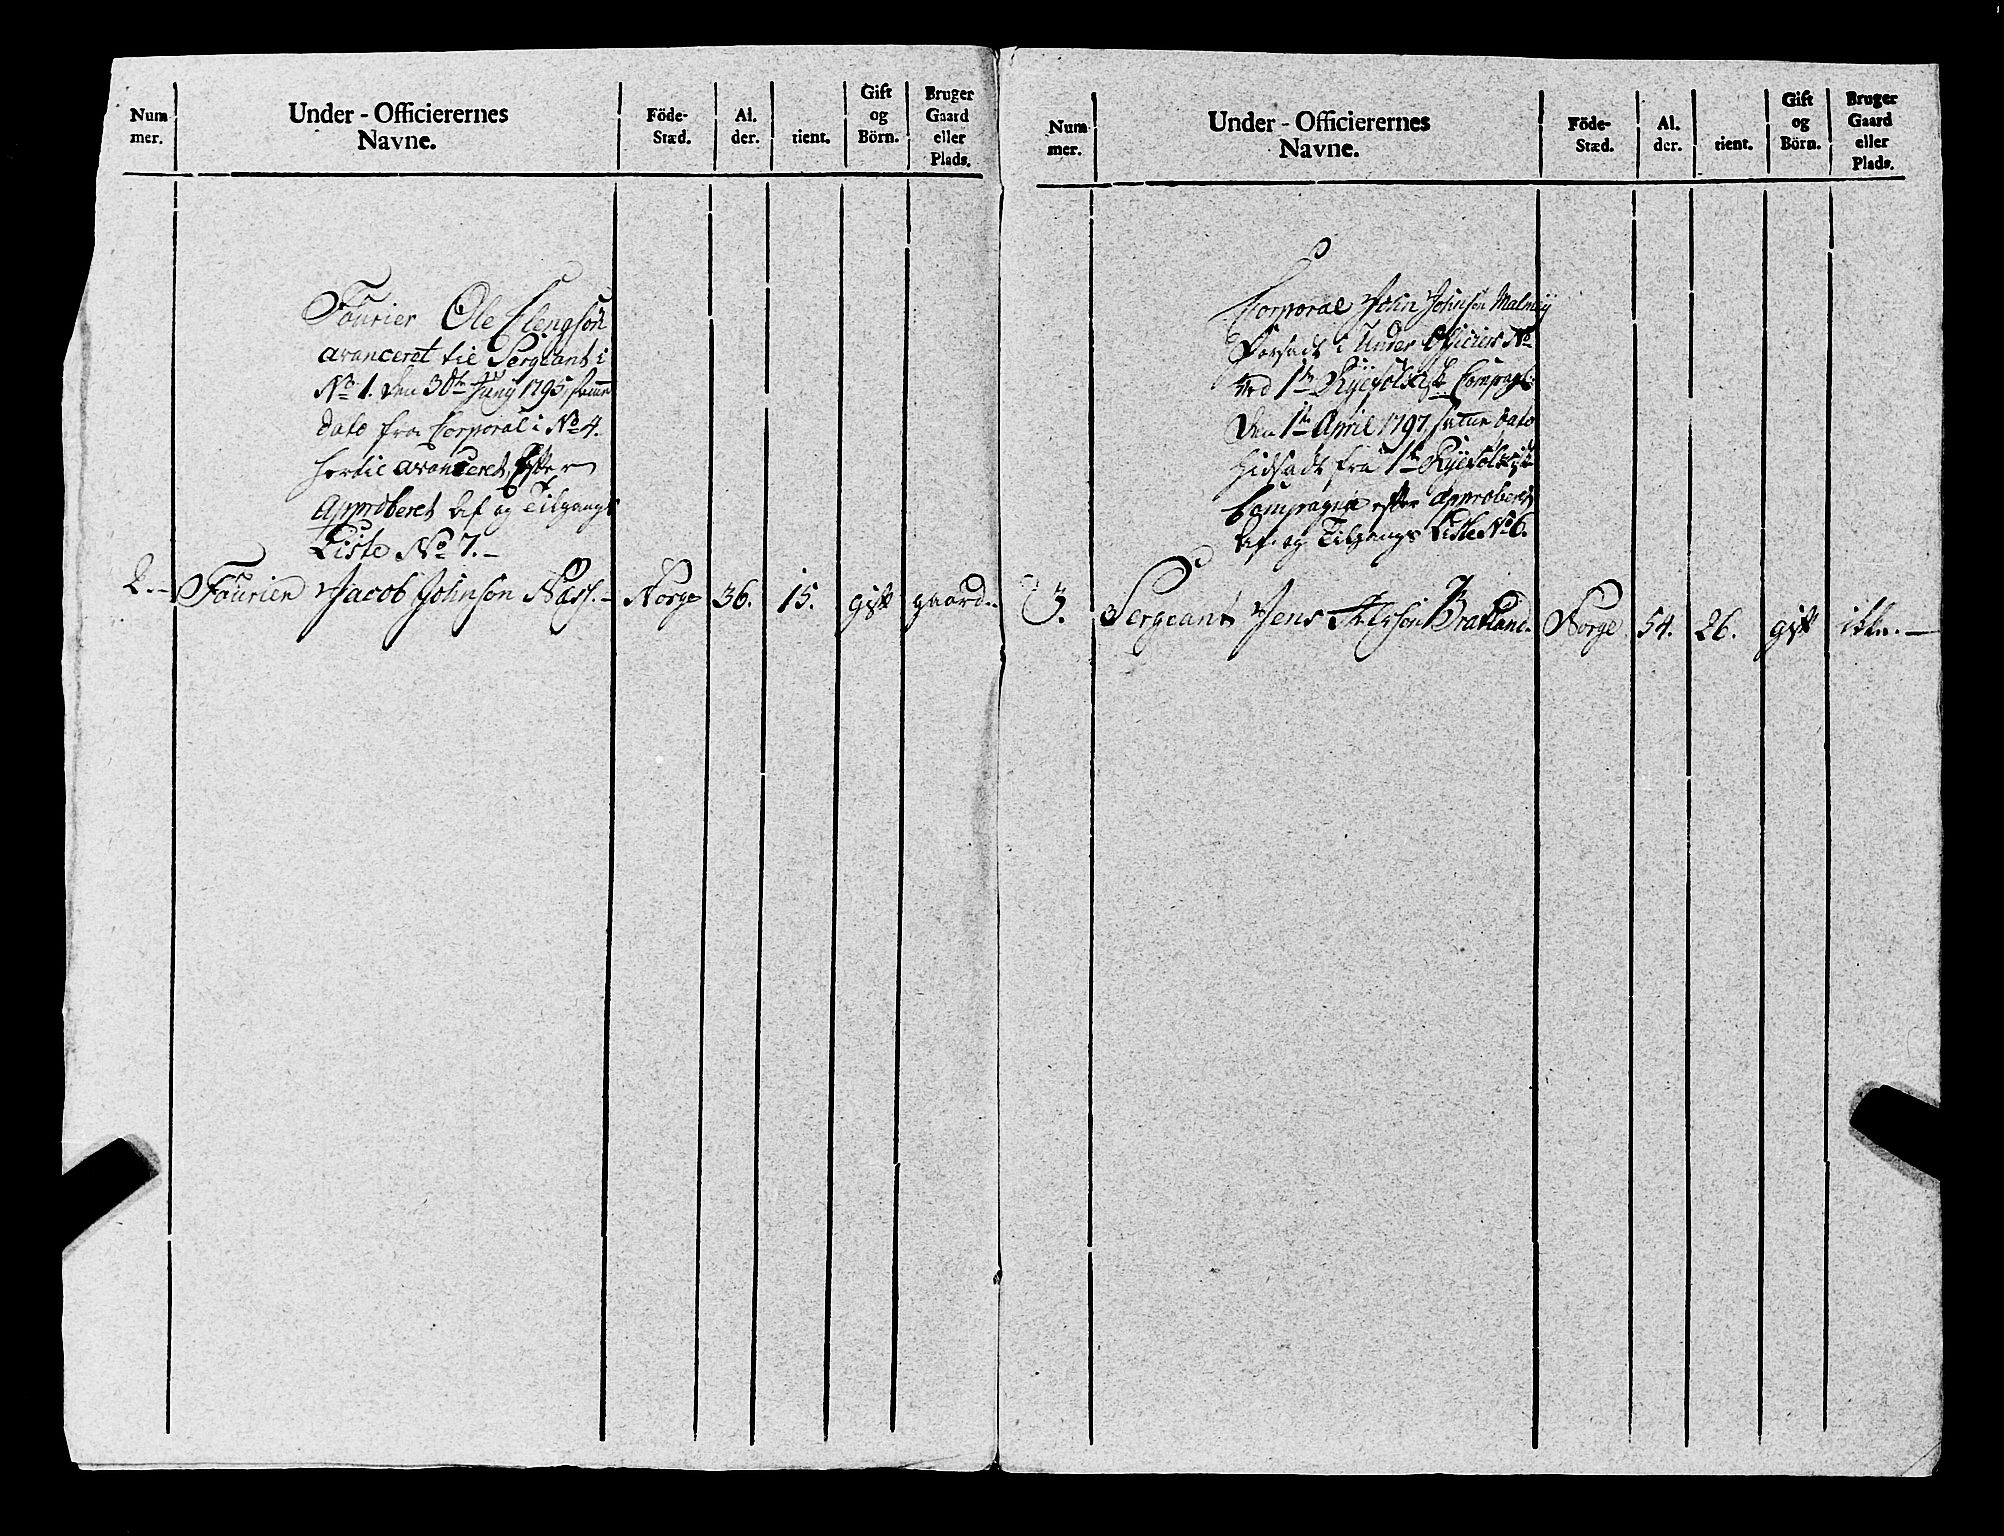 Num
mer.
Under - Officierernes
Navne.
Föde-
Stæd.
Al.
der.
tient.
Gift
og
Börn.
Bruger
Gaard
eller
Plads.
Fourier Ole Elengsön
avanceret til Sergeant i
No 1. den 30te Juny 1795, samme
dato fra Corporal i No 4.
hertil avanceret, efter
Approberet Af og Tilgangs
Liste No 7.-
2.- Fourier Jacob Johnson Næss.- Norge 36. 15. gift gaard.
Num
mer.
Under - Officierernes
Navne.
Föde-
Stæd.
Al.
der.
tient.
Gift
og
Börn.
Bruger
Gaard
eller
Plads.
Corporal John Johnsøn Malmey
forsadt i Under Officier No
ved 1te Ryefölkske Compagt:
den 1te April 1797, samme dato
hidsadt fra 1te Ryefölkske
Compagnie efter approberet
Af- og Tilgangs Liste No 6.
3. Sergeant Jens Bratland. Norge 54. 26. gift ikke.-